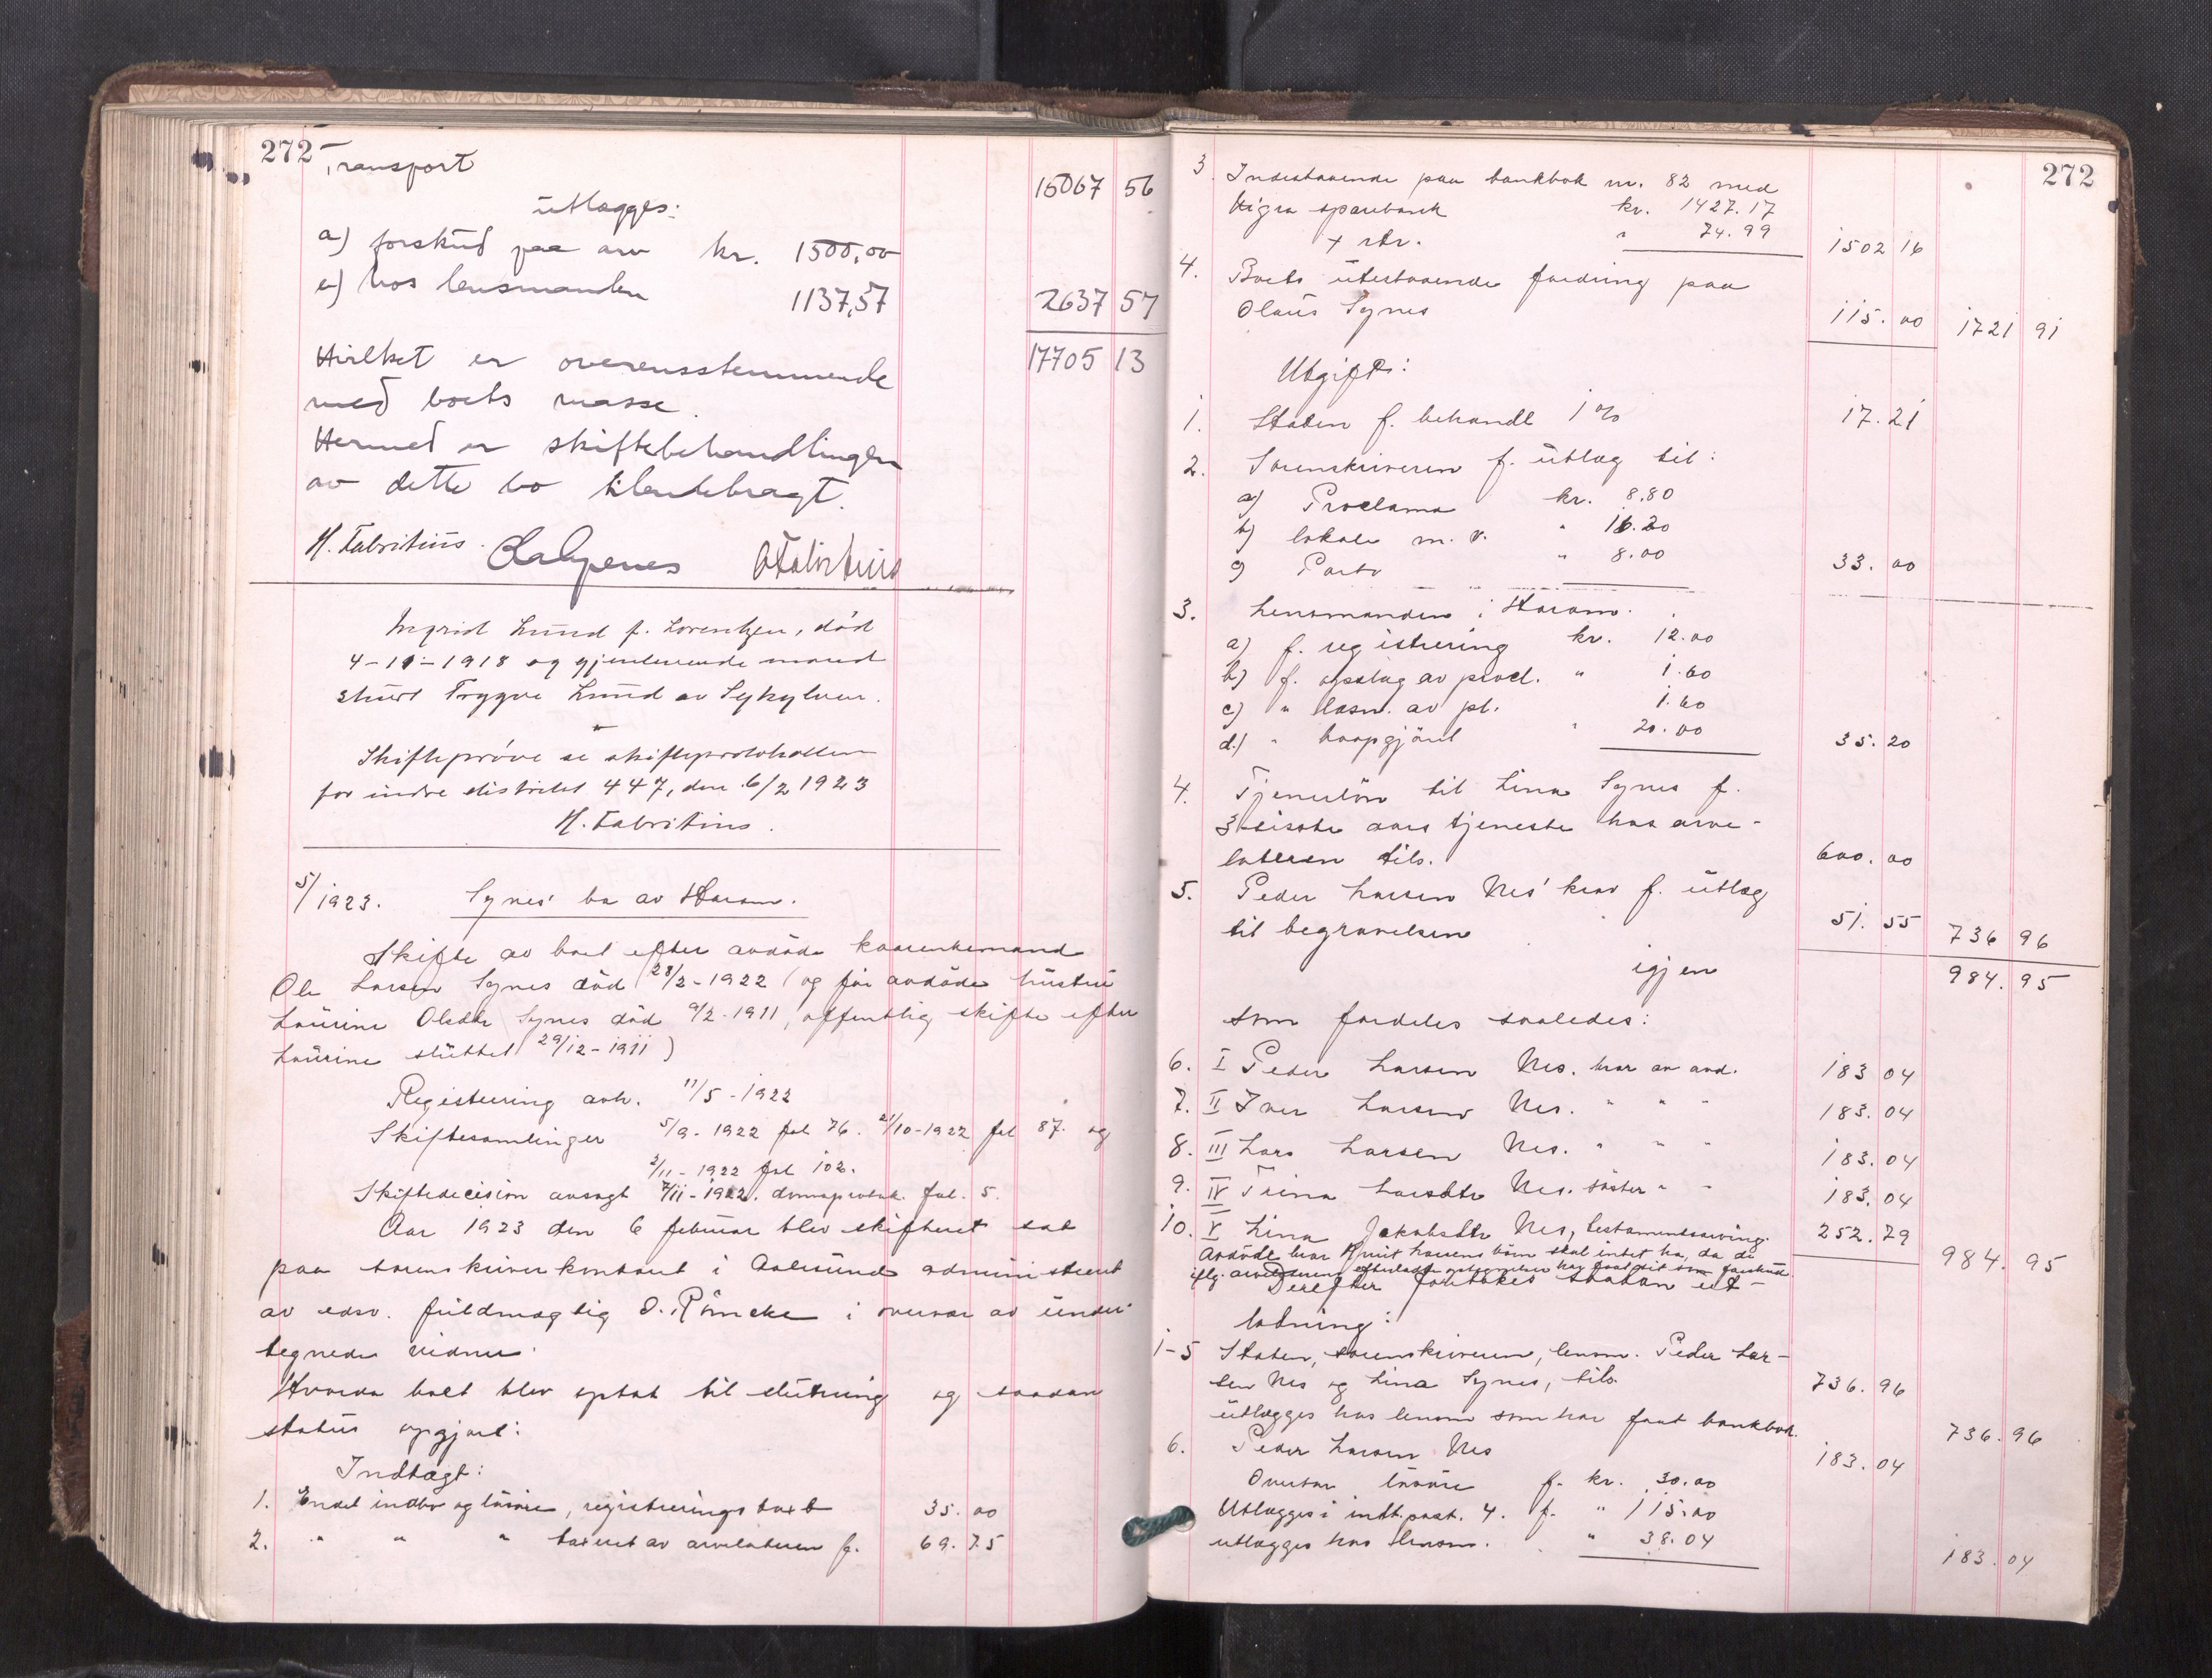 272
Transport 15067 56
utlægges:
a) forskud paa arv kr. 1500,00
e) hos lensmanden 1137,57 2637 57
Hvilket er overensstemmende 17705 13
med boets masse.
Hermed er skiftebehandlingen
av dette bo tilendebragt.
H. Fabritius.
Ingrid Lund f. Lorentzen, död
4-11-1918 og gjenlevende mand
stud Trygve Lund av Sykylven.
Skifteprøve se skifteprotokollen
for indre distrikt 447, den 6/2 1923
H. Fabritius.
5/1923. Synes' bo av Haram.
Skifte av boet efter avdöde kaarenkemand
Ole Larsen Synes död 28/2-1922 (og för avdöde hustru
Laurine Olsdtr Synes död 9/2-1911, offentlig skifte efter
Laurine sluttet 29/12-1911)
Registrering avh. 11/5-1922
Skiftesamlinger 5/9-1922 fol 76. 21/10-1922 fol 87. og
2/11-1922 fol 102.
Skiftedecision avsagt 7/11-1922. domsprotok. fol. 5.
Aar 1923 den 6 februar blev skifteret sat
paa sorenskriverkontoret i Aalesund administrert
av edsv. fuldmægtig O. Röncke i overvær av under-
tegnede vidner.
Hvorda boet blev optat til slutning og saadan
status opgjort:
Indtægt:
1. Endel indbo og lösöre, registreringstakst 35.00
2. " " " taxeret av arvelateren f. 69.75
272
3. Indestaaende paa bankbok nr. 82 med
Vigra sparebank kr. 1427.17
+ rtr. " 74.99 1502 16
4. Boets utestaaende fordring paa
Olaus Synes 115.00 1721 91
Utgift:
1. Staten f. behandl 1% 17.21
2. Sorenskriveren f. utlæg til:
a) Proclama kr. 8.80
b) lokale m. v. " 16.20
c) Porto " 8.00 33.00
3. Lensmanden i Haram.
a) f. registrering kr. 12.00
b) f. opslag av procl. " 1.60
c) " læsn. av pl. 1.60
d.) " boopgjörel " 20.00 35.20
4. Tjenerlön til Lina Synes f.
3 sisste aars tjeneste hos arve-
lateren tils. 600.00
5. Peder Larsen Nes' krav f. utlæg
til begravelsen 51.55 736 96
igjen 984.95
som fordeles saaledes:
6. I Peder Larsen Nes. bror av avd. 183 04
7. II Iver Larsen Nes. " " " 183.04
8. III Lars Larsen Nes. " " " 183.04
9. IV Trina Larsdtr Nes. söster " " 183.04
10. V Lina Jakobsdtr Nes, testamentsarving. 252.79 984.95
Avdöde bror Knut Larsens börn skal intet ha, da de
iflg. arvelaterens efterladte optegnelser har faat sit som forskud.
Derefter foretokes saadan ut-
lodning:
1-5 Staten, sorenskriveren, lensm. Peder Lar-
sen Nes og Lina Synes, tils. 736.96
utlægges hos lensm som har faat bankbok. 736.96
6. Peder Larsen Nes 183.04
Overtar lösöre f. kr. 30.00
Utlægges i indt.post. 4. f. " 115.00
utlægges hos lensm. " 38.04 183.04